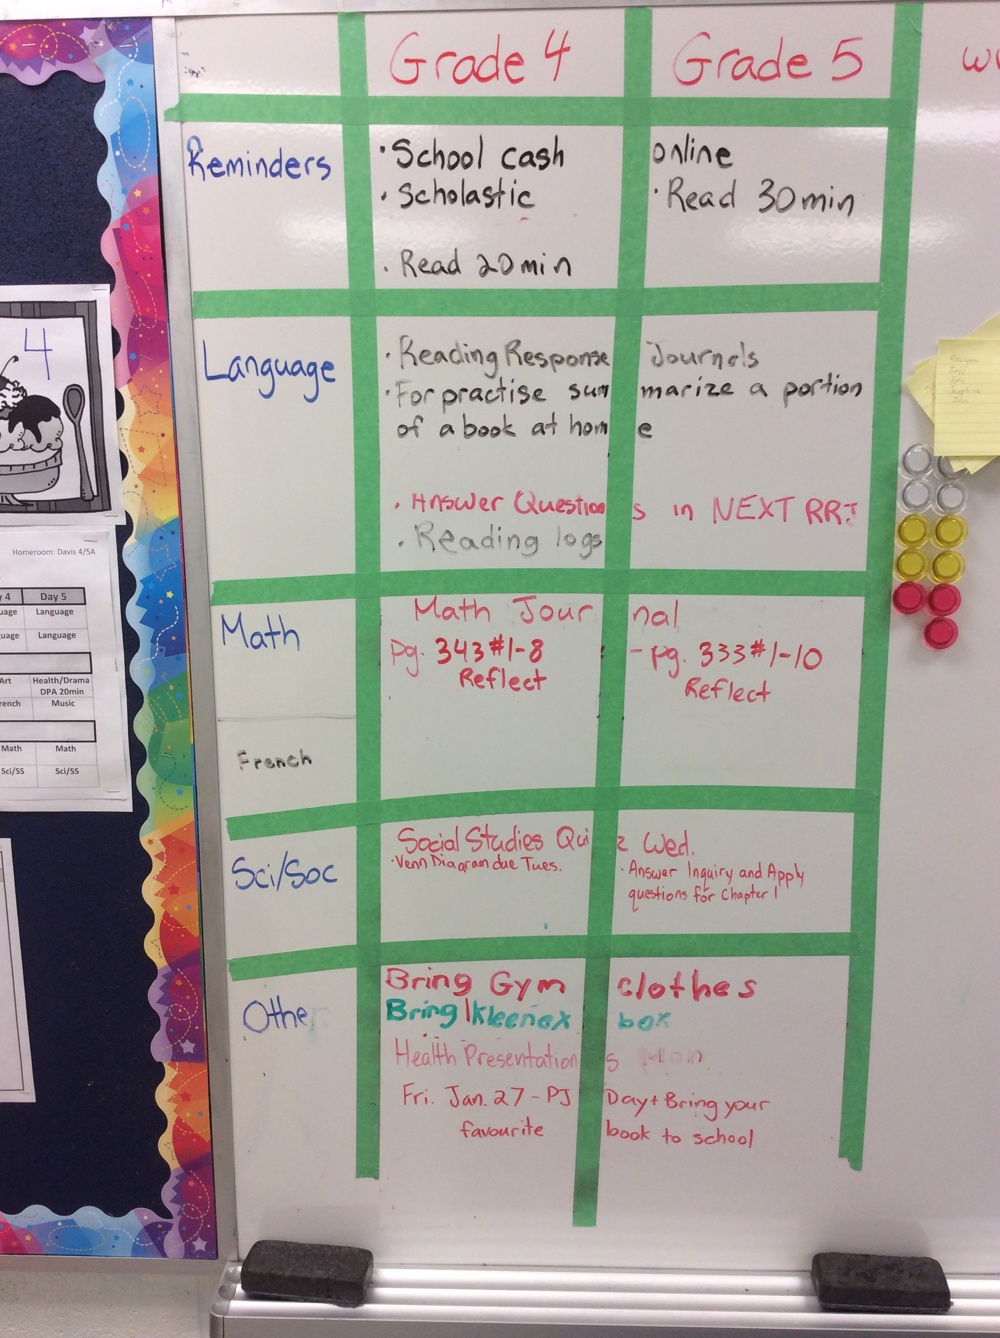 Grade 4 Grade 5
Reminders
· School cash online
· Scholastic
· Read 30 min
· Read 20 min
Language
· Reading Response Journals
· For practise summarize a portion
of a book at home
· Answer Questions in NEXT RRJ
· Reading logs
Math
Math Journal
pg. 343 #1-8
Reflect
- pg. 333 #1-10
Reflect
French
Sci/Soc
Social Studies Quiz Wed.
· Venn Diagram due Tues.
· Answer Inquiry and Apply
questions for Chapter 1
Other
Bring Gym clothes
Bring Kleenex box
Health Presentations Mon.
Fri. Jan. 27 - PJ Day + Bring your
favourite book to school
4
Homeroom: Davis 4/5A
4 Day 5
Language
Language
Art Health/Drama
DPA 20min
Music
Math Math
Sci/SS Sci/SS